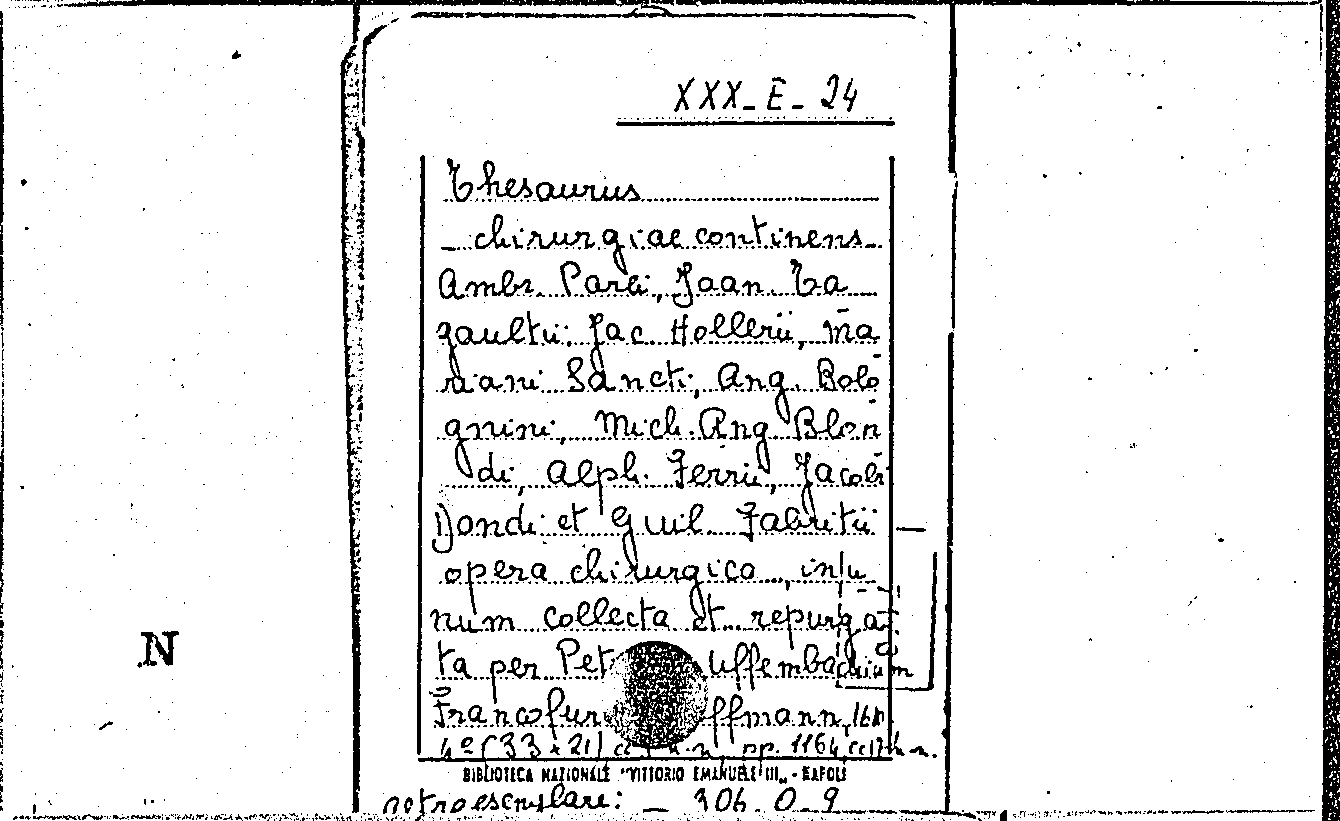 XXX_E_24
Thesaurus
_ chirurgiae continens
Ambr. Parei, Joan. Ta
gaultii; Jac. Hollerii, Ma
riani Sancti, Ang. Bolo
gnini, Mich. Ang Blon
di, Alph. Ferrii, Jacobi
Dondi et Guil. Fabritii
opera chirurgica, in u
num collecta et repurga
ta per Pet uffembachium
N
Francofur ffmann,
4º (33 x 21) pp. 1164
BIBLIOTECA NAZIONALE "VITTORIO EMANUELE III" - NAPOLI
altro esemplare: _ 306. O. 9